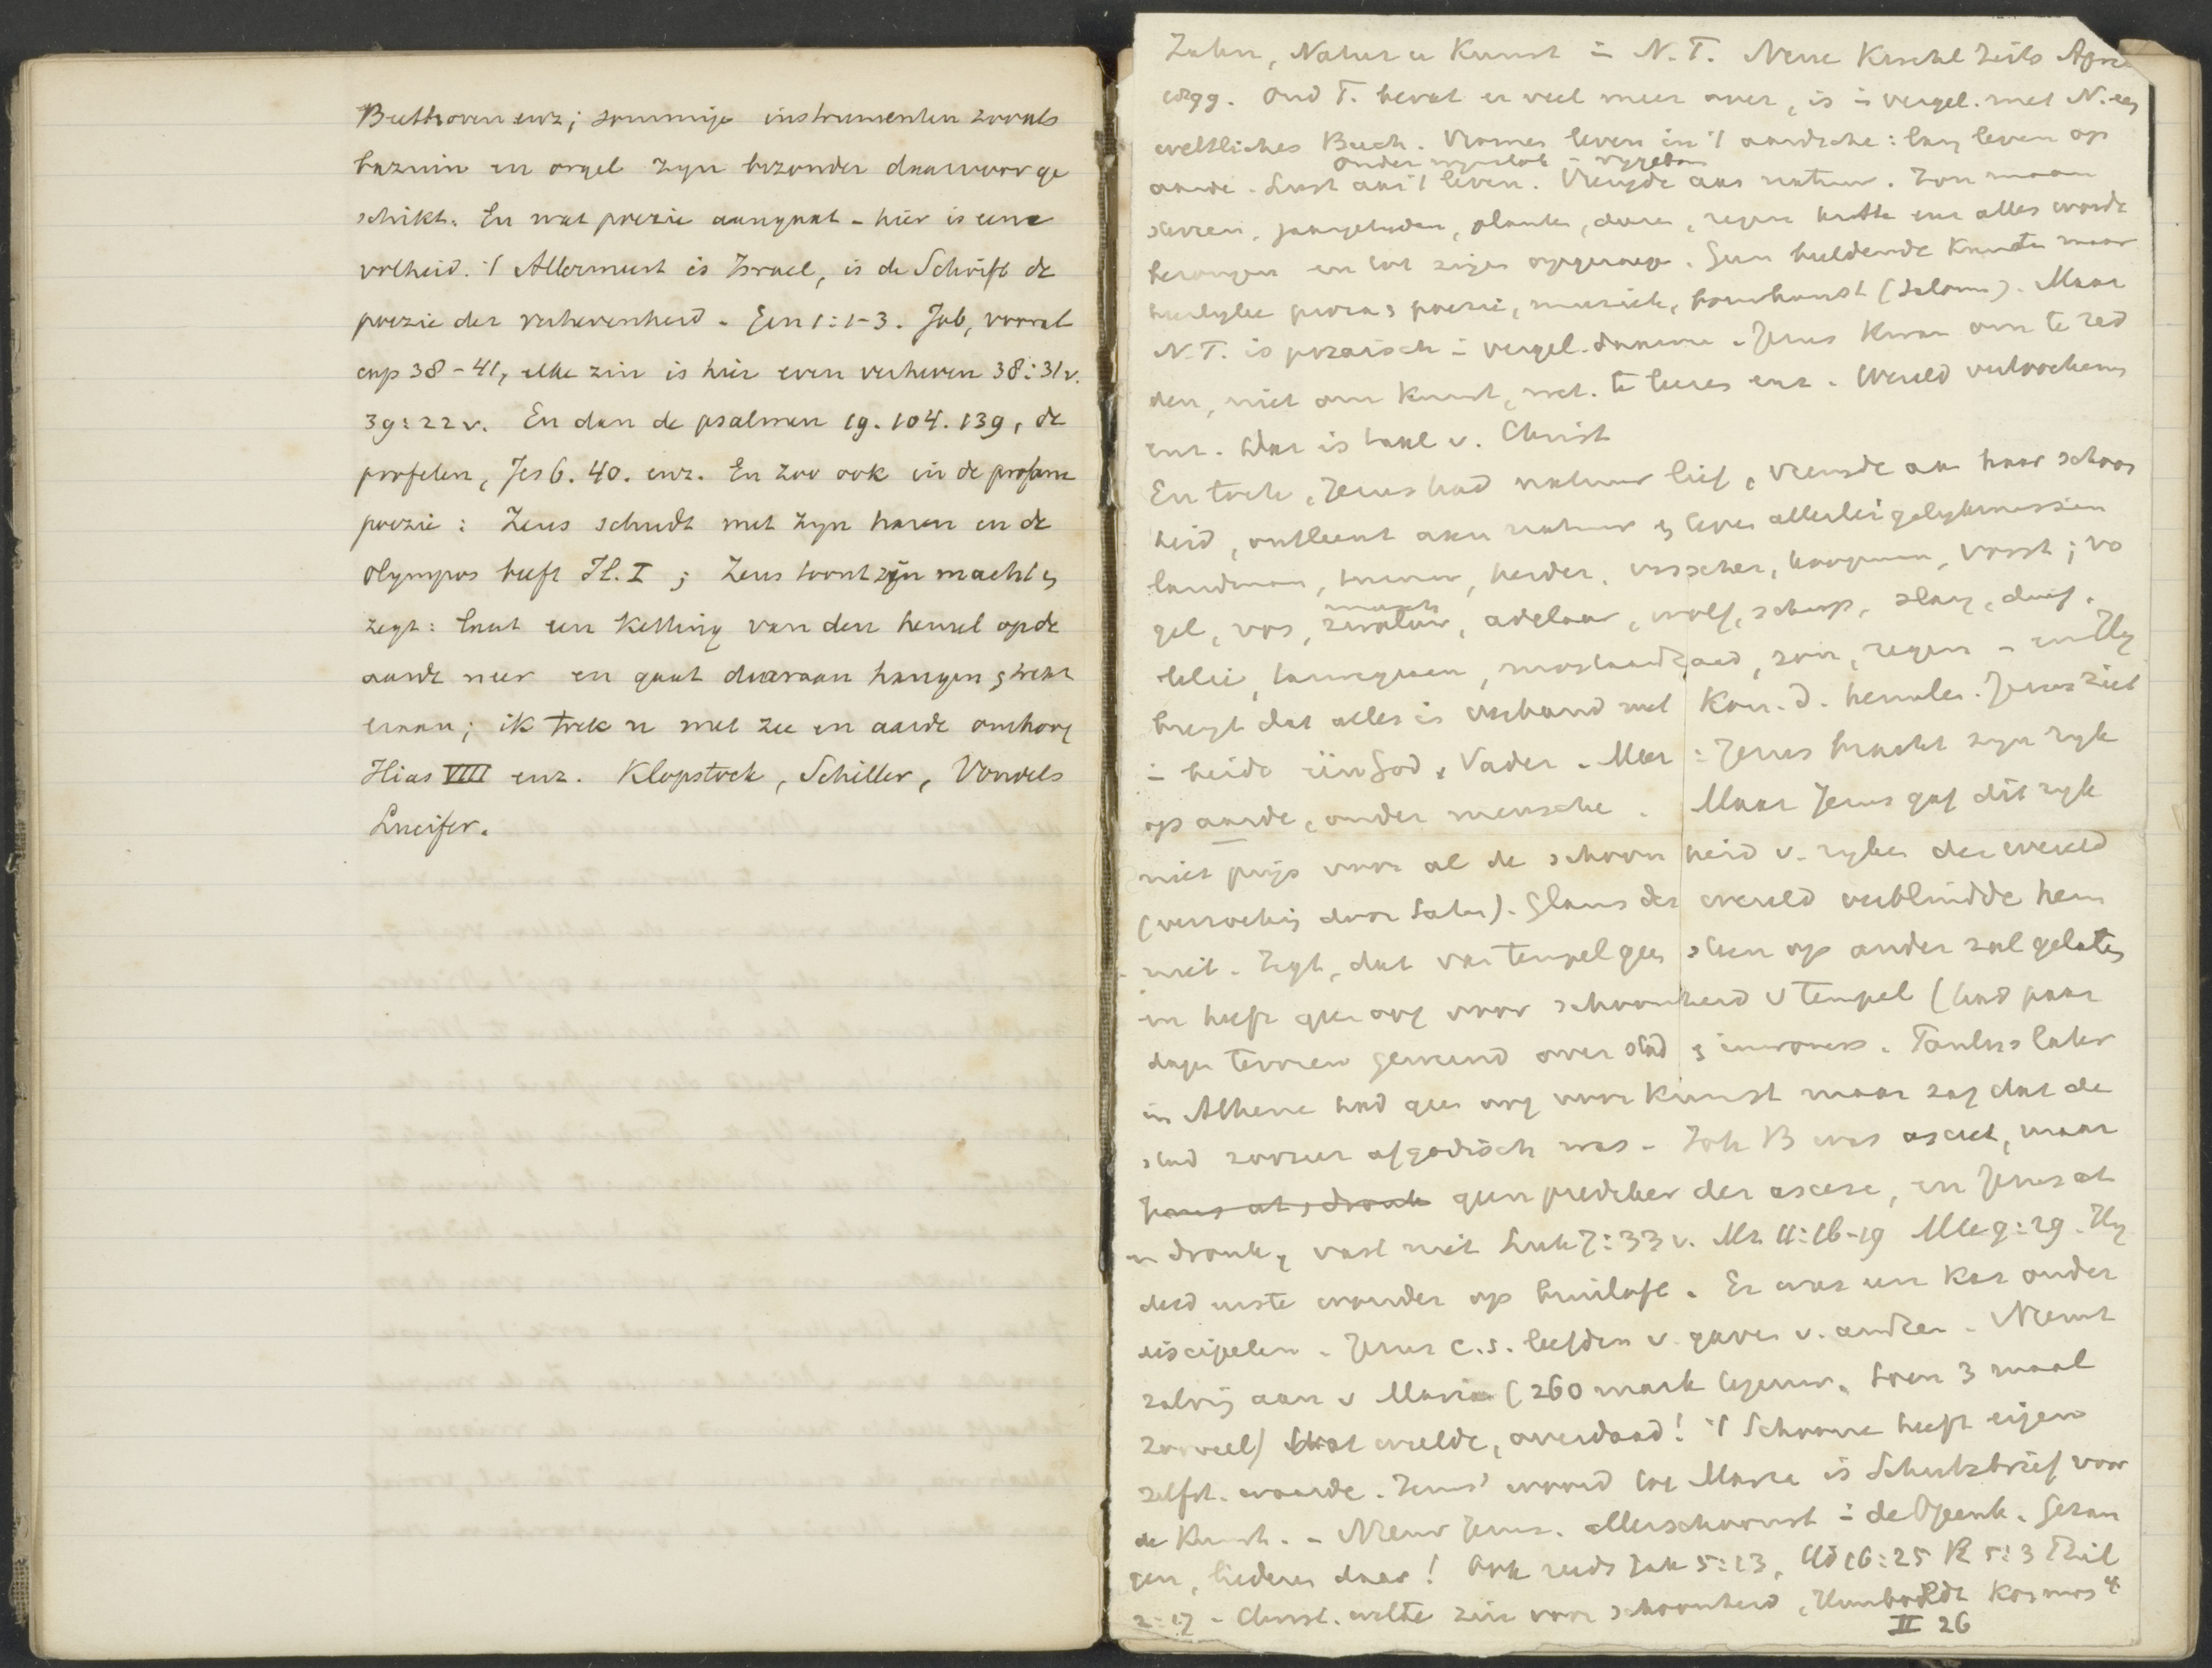 Beethoven enz; sommige instrumenten zooals
bazuin en orgel zyn byzonder daarvoor ge
schikt. En wat poezie aangaat - hier is eene
volheid. 't Allermeest is Israel, is de Schrift de
poezie der verhevenheid. Gen 1:1-3. Job, vooral
cap 38-41, elke zin is hier even verheven 38:31v.
39:22v. En dan de psalmen 19. 104. 139, de
profeten, Jes 6. 40. enz. En zoo ook in de profane
poezie: Zeus schudt met zyn haren en de
Olympos beeft Il. I ; Zeus toont zijn macht en
zegt: laat een ketting van den hemel op de
aarde neer en gaat daaraan hangen en trekt
eraan; ik trek u met zee en aarde omhoog
Ilias VIII enz. Klopstock, Schiller, Vondels
Lucifer.
Zahn, Natur u Kunst in N.T. Neue Kirchl Zeits
1899. Oud T. bevat er veel meer over, is in vergel. met N. een
weltliches Buch. Vromen leven in 't aardsche: lang leven op
onder wynstok en vygeboom
aarde. Lust aan 't leven. Vreugde aan natuur. Zon maan
sterren, jaargetyden, planten, dieren, regen hitte enz alles wordt
bezongen en tot zingen opgeroepen. Geen beeldende Kunsten maar
heerlyke proza en poezie, muziek, bouwkunst (Salomo). Maar
N.T. is prozaisch in vergel. daarme. Jezus kwam om te red
den, niet om kunst, wet. te leeren enz. Wereld verloochenen
enz. Dat is taal v. Christ
En toch, Jezus had natuur lief, vreugde aan haar schoon
heid, ontleent aan natuur en leven allerlei gelykenissen
landman, herder, visscher, koopman, vorst; vo
gel, vos, adelaar, wolf, schaap, slang, duif,
lelie, mostaardzaad, zon, regen - en Hy
brengt dat alles in verband met Kon. d. hemelen. Jezus ziet
in beide één God en Vader. Meer: Jezus bracht zyn ryk
op aarde, onder menschen. Maar Jezus gaf dit ryk
niet prijs voor al de schoonheid v. ryken der wereld
(verzoeking door Satan). Glans der wereld verblindde hem
niet. Zegt, dat van tempel geen steen op ander zal gelaten
en heeft geen oog voor schoonheid v tempel (had paar
dagen tevoren geweend over stad en inwoners. Paulus later
in Athene had geen oog voor kunst maar zag dat de
stad zoozeer afgodisch was. Joh B was asceet, maar
Jezus at en dronk geen prediker der ascese, en Jezus at
en dronk, vast niet Luk 7:33v. Mt 11:16-19 Mt 9:29. Hy
deed eerste wonder op bruiloft. Er was een kas onder
discipelen. Jezus c.s. leefden v. gaven v. andren. Neemt
zalving aan v Maria (260 mark tegenw. toen 3 maal
zooveel) Wat weelde, overdaad! 't Schoone heeft eigen
zelfst. waarde. Jezus' woord tot Maria is Schutzbrief voor
de Kunst. - Nieuw Jeruz. allerschoonst in de Openb. Gezan
gen, liederen daar! Ook reeds Jak 5:13, Hd 16:25
- Christ. wekte zin voor schoonheid, Humboldt Kosmos
II 26